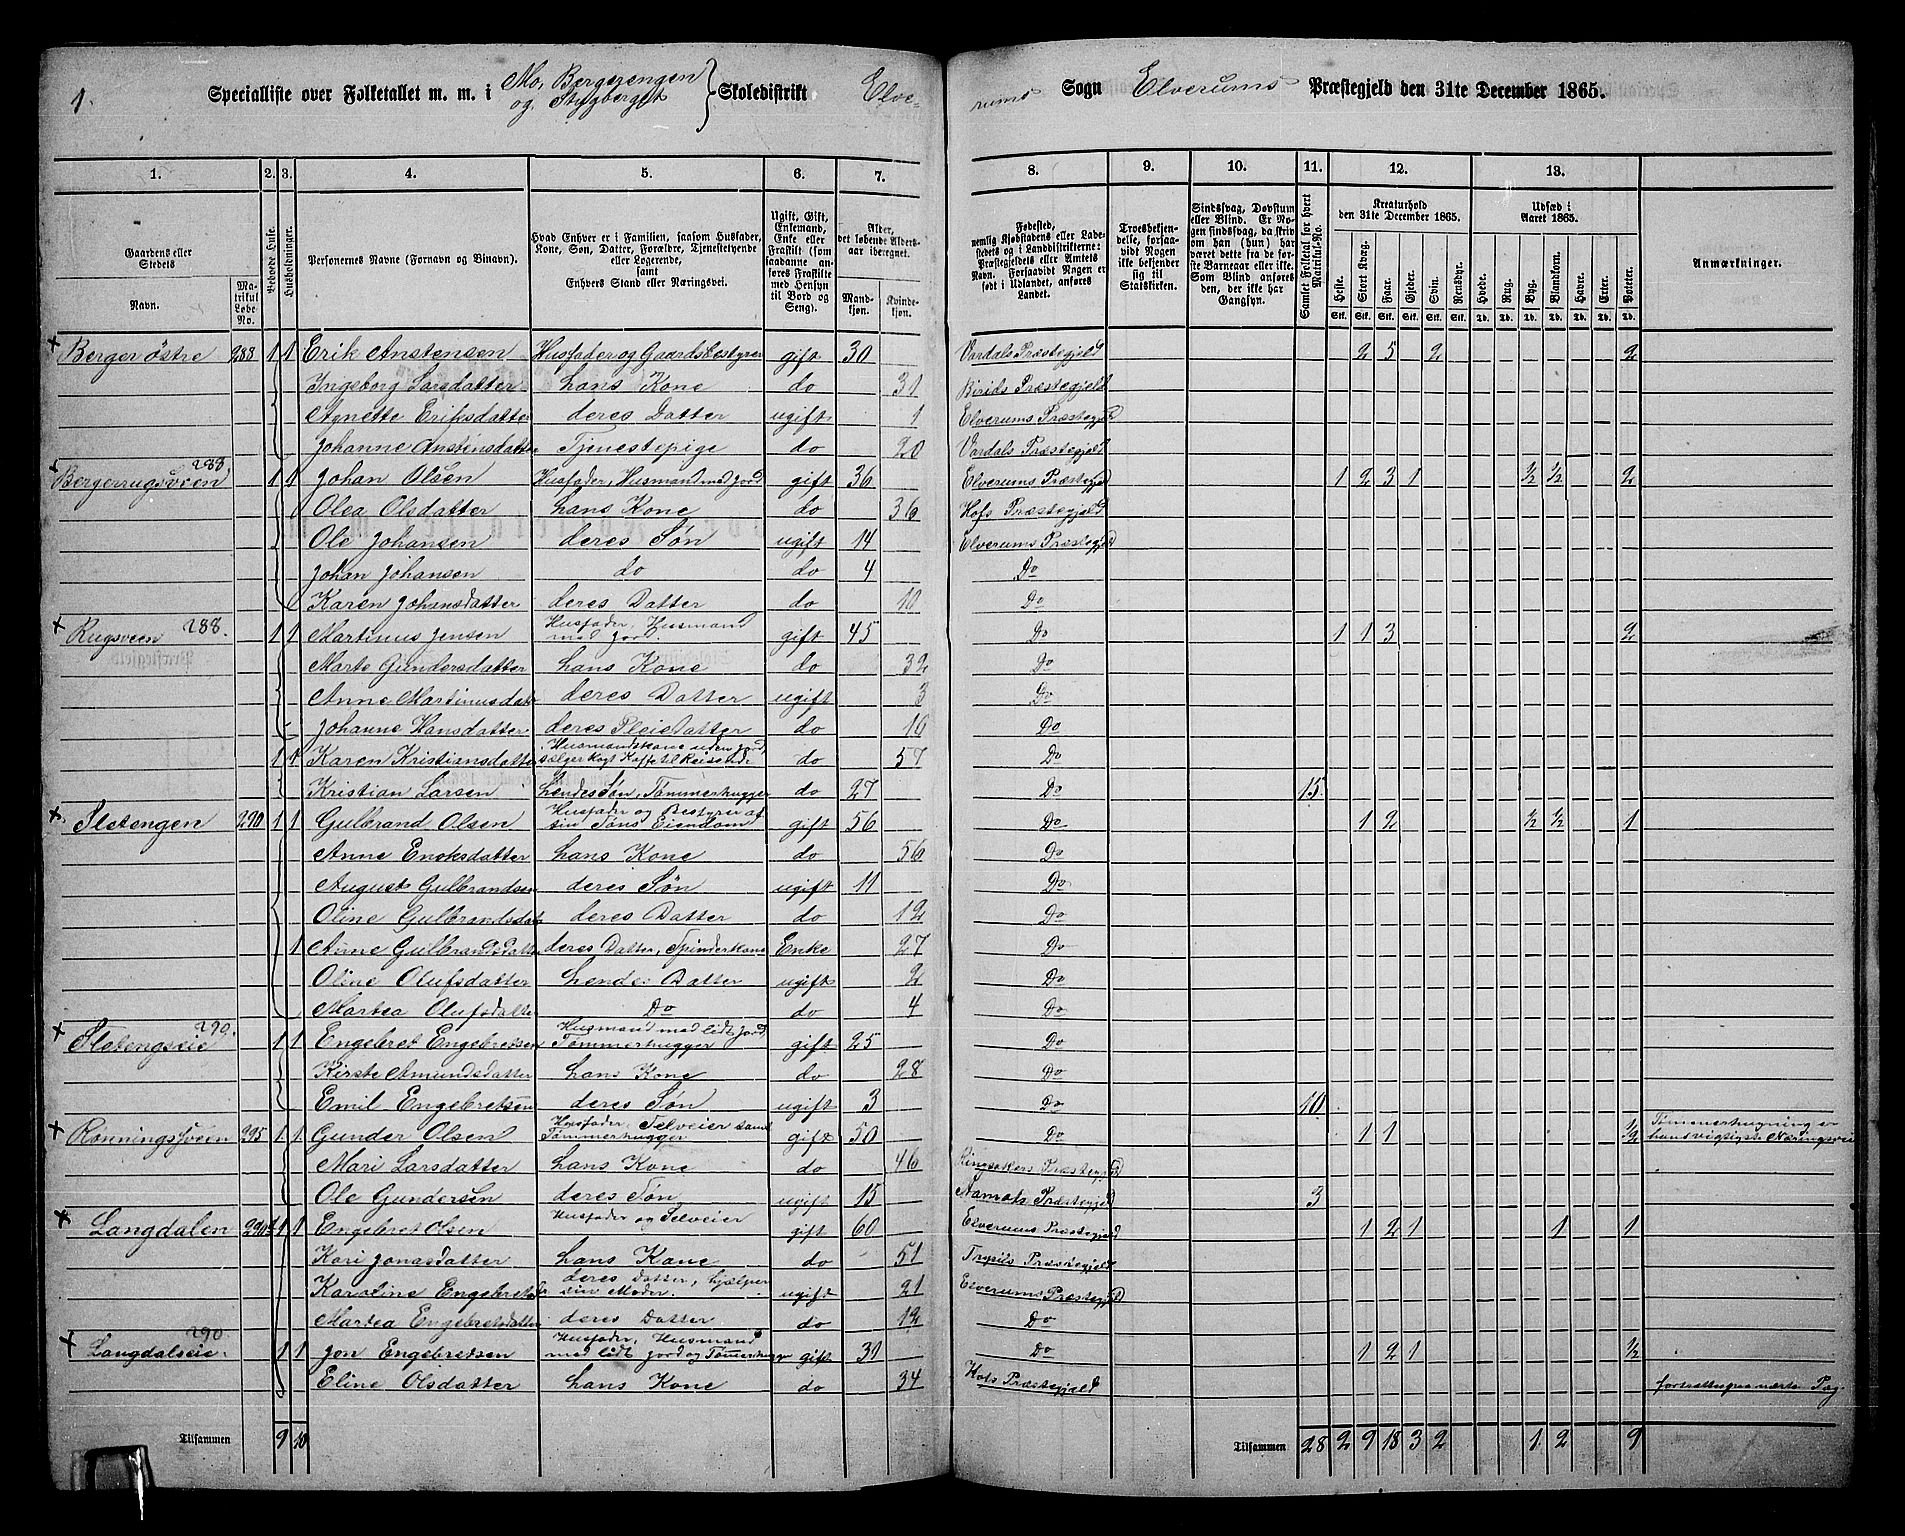 1.
Specialliste over Folketallet m. m. i Mo, Bergerengen og Stygberget } Skoledistrikt Elve-
rums Sogn Elverums Præstegjeld den 31te December 1865.
1. 2. 3. 4. 5. 6. 7. 8. 9. 10. 11. 12. 13.
Gaardens eller Stedets
Navn.
Matrikul Løbe-No.
Beboede Huse.
Husholdninger.
Personernes Navne (Fornavn og Binavn).
Hvad Enhver er i Familien, saasom Husfader, Kone, Søn, Datter, Forældre, Tjenestetyende eller Logerende, samt Enhvers Stand eller Næringsvei.
Ugift, Gift, Enkemand, Enke eller Fraskilt (som saadanne anføres Fraskilte med Hensyn til Bord og Seng).
Alder, det løbende Aldersaar iberegnet.
Mandkjøn. Kvindekjøn.
Fødested, nemlig Kjøbstadens eller Ladestedets og i Landdistrikterne: Præstegjeldets eller Amtets Navn. Forsaavidt Nogen er født i Udlandet, anføres Landet.
Troesbekjendelse, forsaavidt Nogen ikke bekjender sig til Statskirken.
Sindssvag, Døvstum eller Blind. Er Nogen sindssvag, da skriv om han (hun) har været dette fra de første Barneaar eller ikke. Som Blind anføres den, der ikke har Gangsyn.
Samlet Folketal for hvert Matrikul-No.
Kreaturhold den 31te December 1865.
Heste. Stort Kvæg. Faar. Gjeder. Svin. Rensdyr.
Stk. Stk. Stk. Stk. Stk. Stk.
Udsæd i Aaret 1865.
Hvede. Rug. Byg. Blandkorn. Havre. Erter. Poteter.
Td. Td. Td. Td. Td. Td. Td.
Anmærkninger.
Berger østre 288 1 1 Erik Anstensen Husfader og Gaardsbestyrer gift 30 Vardals Præstegjeld 2 5 2 2
Ingeborg Larsdatter hans Kone do 31 Birids Præstegjeld
Agnette Eriksdatter deres Datter ugift 1 Elverums Præstegjeld
Johanne Anstensdatter Tjenestepige do 20 Vardals Præstegjeld
Bergerrugsveen 288. 1 1 Johan Olsen Husfader, Husmand med Jord gift 36 Elverums Præstegjeld 1 2 3 1 ½ ½ 2
Olea Olsdatter hans Kone do 36 Hofs Præstegjeld
Ole Johansen deres Søn ugift 14 Elverums Præstegjeld
Johan Johansen do do 4 Do
Karen Johansdatter deres Datter do 10 Do
Rugsveen 288. 1 1 Martinus Jensen Husfader, Husmand med Jord. gift 45 Do 1 1 3 2
Marte Gundersdatter hans Kone do 32 Do
Anne Martinusdatr deres Datter ugift 3 Do
Johanne Hansdatter deres Pleiedatter do 16 Do
1 1 Karen Kristiansdatter Husmandskone uden Jord, sælger kogt Kaffe til Reisende do 57 Do
Kristian Larsen hendes Søn, Tømmerhugger do 27 Do 15
Sletengen 290 1 1 Gulbrand Olsen Husfader og Bestyrer af sin Søns Eiendom gift 56 Do 1 2 ½ ½ 1
Anne Enoksdatter hans Kone do 56 Do
August Gulbrandsen deres Søn ugift 11 Do
Oline Gulbrandsdatr deres Datter do 12 Do
1 Anne Gulbrandsdatter deres Datter, Spinderkone Enke 27 Do
Oline Olufsdatter hendes Datter ugift 2 Do
Martea Olufsdatter Do do 4 Do
Sletengseie 290. 1 1 Engebret Engebretsen Husmand med lidt Jord, Tømmerhugger gift 25 Do
Kirste Amundsdatter hans Kone do 28 Do
Emil Engebretsen deres Søn ugift 3 Do 10
Rønningssveen 295 1 1 Gunder Olsen Husfader, Selveier samt Tømmerhugger gift 50 Do 1 1 ½ Tømmerhugning er hans vigtigste Næringsvei
Mari Larsdatter hans Kone do 46 Ringsakers Præstegjeld
Ole Gundersen deres Søn ugift 15 Præstegjeld 3
Langdalen 290 1 1 Engebret Olsen Husfader og Selveier gift 60 Elverums Præstegjeld 1 2 1 1 1
Kari Jonasdatter hans Kone do 51 Trysils Præstegjeld
Karoline Engebretsd. deres Datter, hjælper sin Moder. ugift 21 Elverums Præstegjeld
Martea Engebretsdatter deres Datter do 12 Do
Langdalseie 290. 1 1 Jon Engebretsen Husfader, Husmand med lidt Jord og Tømmerhugger gift 31 Do 1 2 1 ½
Eline Olsdatter hans Kone do 34 Hofs Præstegjeld fortsættes paa nærte Pag.
Tilsammen 9 10
Tilsammen 28 2 9 18 3 2 1 2 9